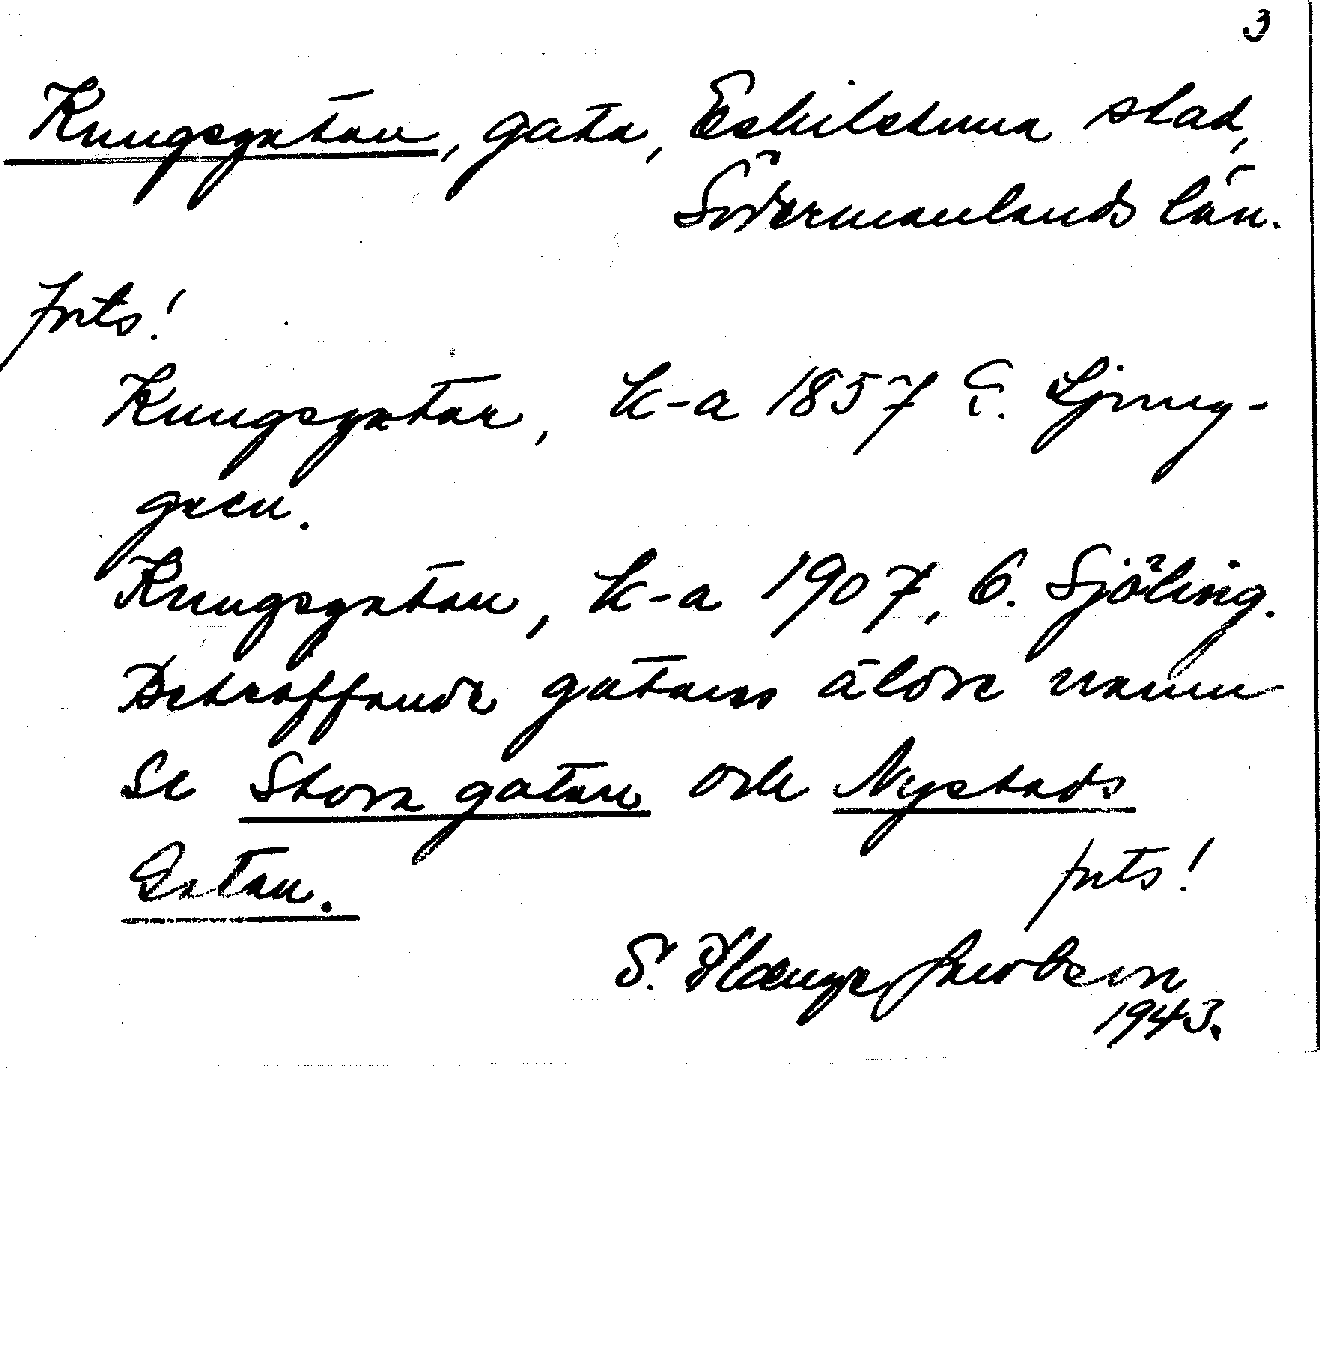 3
Kungsgatan, gata, Eskilstuna stad,
Södermanlands län.
forts!
Kungsgatan, k-a 1857 E. Ljung-
gren.
Kungsgatan, k-a 1907, G. Sjöling.
Beträffande gatans äldre namn
se Stora gatan och Nystads
Gatan. forts!
S.
1943.